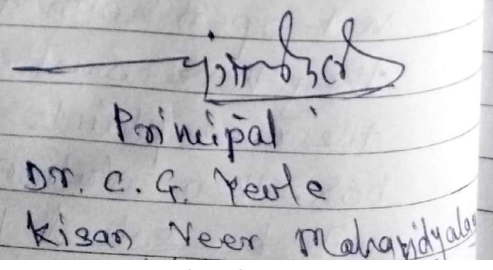 Principal
Dr. C. G. Yevle
Kisan Veer Mahavidyalay